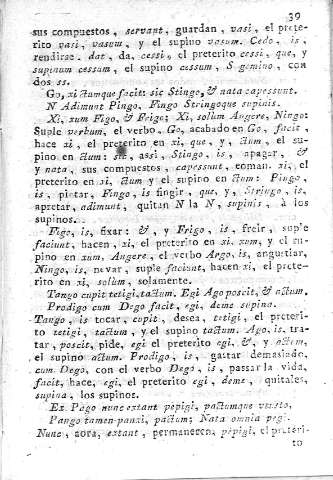 39
sus compuestos, servant, guardan, vasi, el prete-
rito vasi, vasum, y el supino vasum. Cedo, is,
rendirse, dat, da, cessi, el preterito cessi, que, y
supinum cessum, el supino cessum, S gemino, con
dos ss.
Go, xi ctumque facit: sic Stingo, & nata capessunt.
N Adimunt Pingo, Fingo Stringoque supinis.
Xi, xum Figo, & Frigo; Xi, solum Angere, Ningo:
Suple verbum, el verbo, Go, acabado en Go, facit,
hace xi, el preterito en xi, que, y, ctum, el su-
pino en ctum: sic, assi, Stingo, is, apagar, &
y nata, sus compuestos, capessunt, toman, xi, el
preterito en xi, ctum y el supino en ctum: Pingo,
is, pintar, Fingo, is fingir, que, y, Stringo, is,
apretar, adimunt, quitan N la N, supinis, à los
supinos.
Figo, is, fixar: &, y, Frigo, is, freir, suple
faciunt, hacen, xi, el preterito en xi, xum, y el su-
pino en xum, Angere, el verbo Ango, is, angustiar,
Ningo, is, nevar, suple faciunt, hacen xi, el prete-
rito en xi, solum, solamente.
Tango cupit tetigi, tactum. Egi Ago poscit, & actum,
Prodigo cum Dego facit, egi, deme supina.
Tango, is tocar, cupit, desea, tetigi, el preteri-
to tetigi, tactum, y el supino tactum. Ago, is, tra-
tar, poscit, pide, egi el preterito egi, &, y actum,
el supino actum. Prodigo, is, gastar demasiado,
cum Dego, con el verbo Dego, is, passar la vida,
facit, hace, egi, el preterito egi, deme, quitales,
supina, los supinos.
Ex Pago nunc extant pepigi, pactumque vetusto,
Pango tamen panxi, pactum; Nata omnia pegi.
Nunc, aora, extant, permanecen, pepigi, el preteri-
to